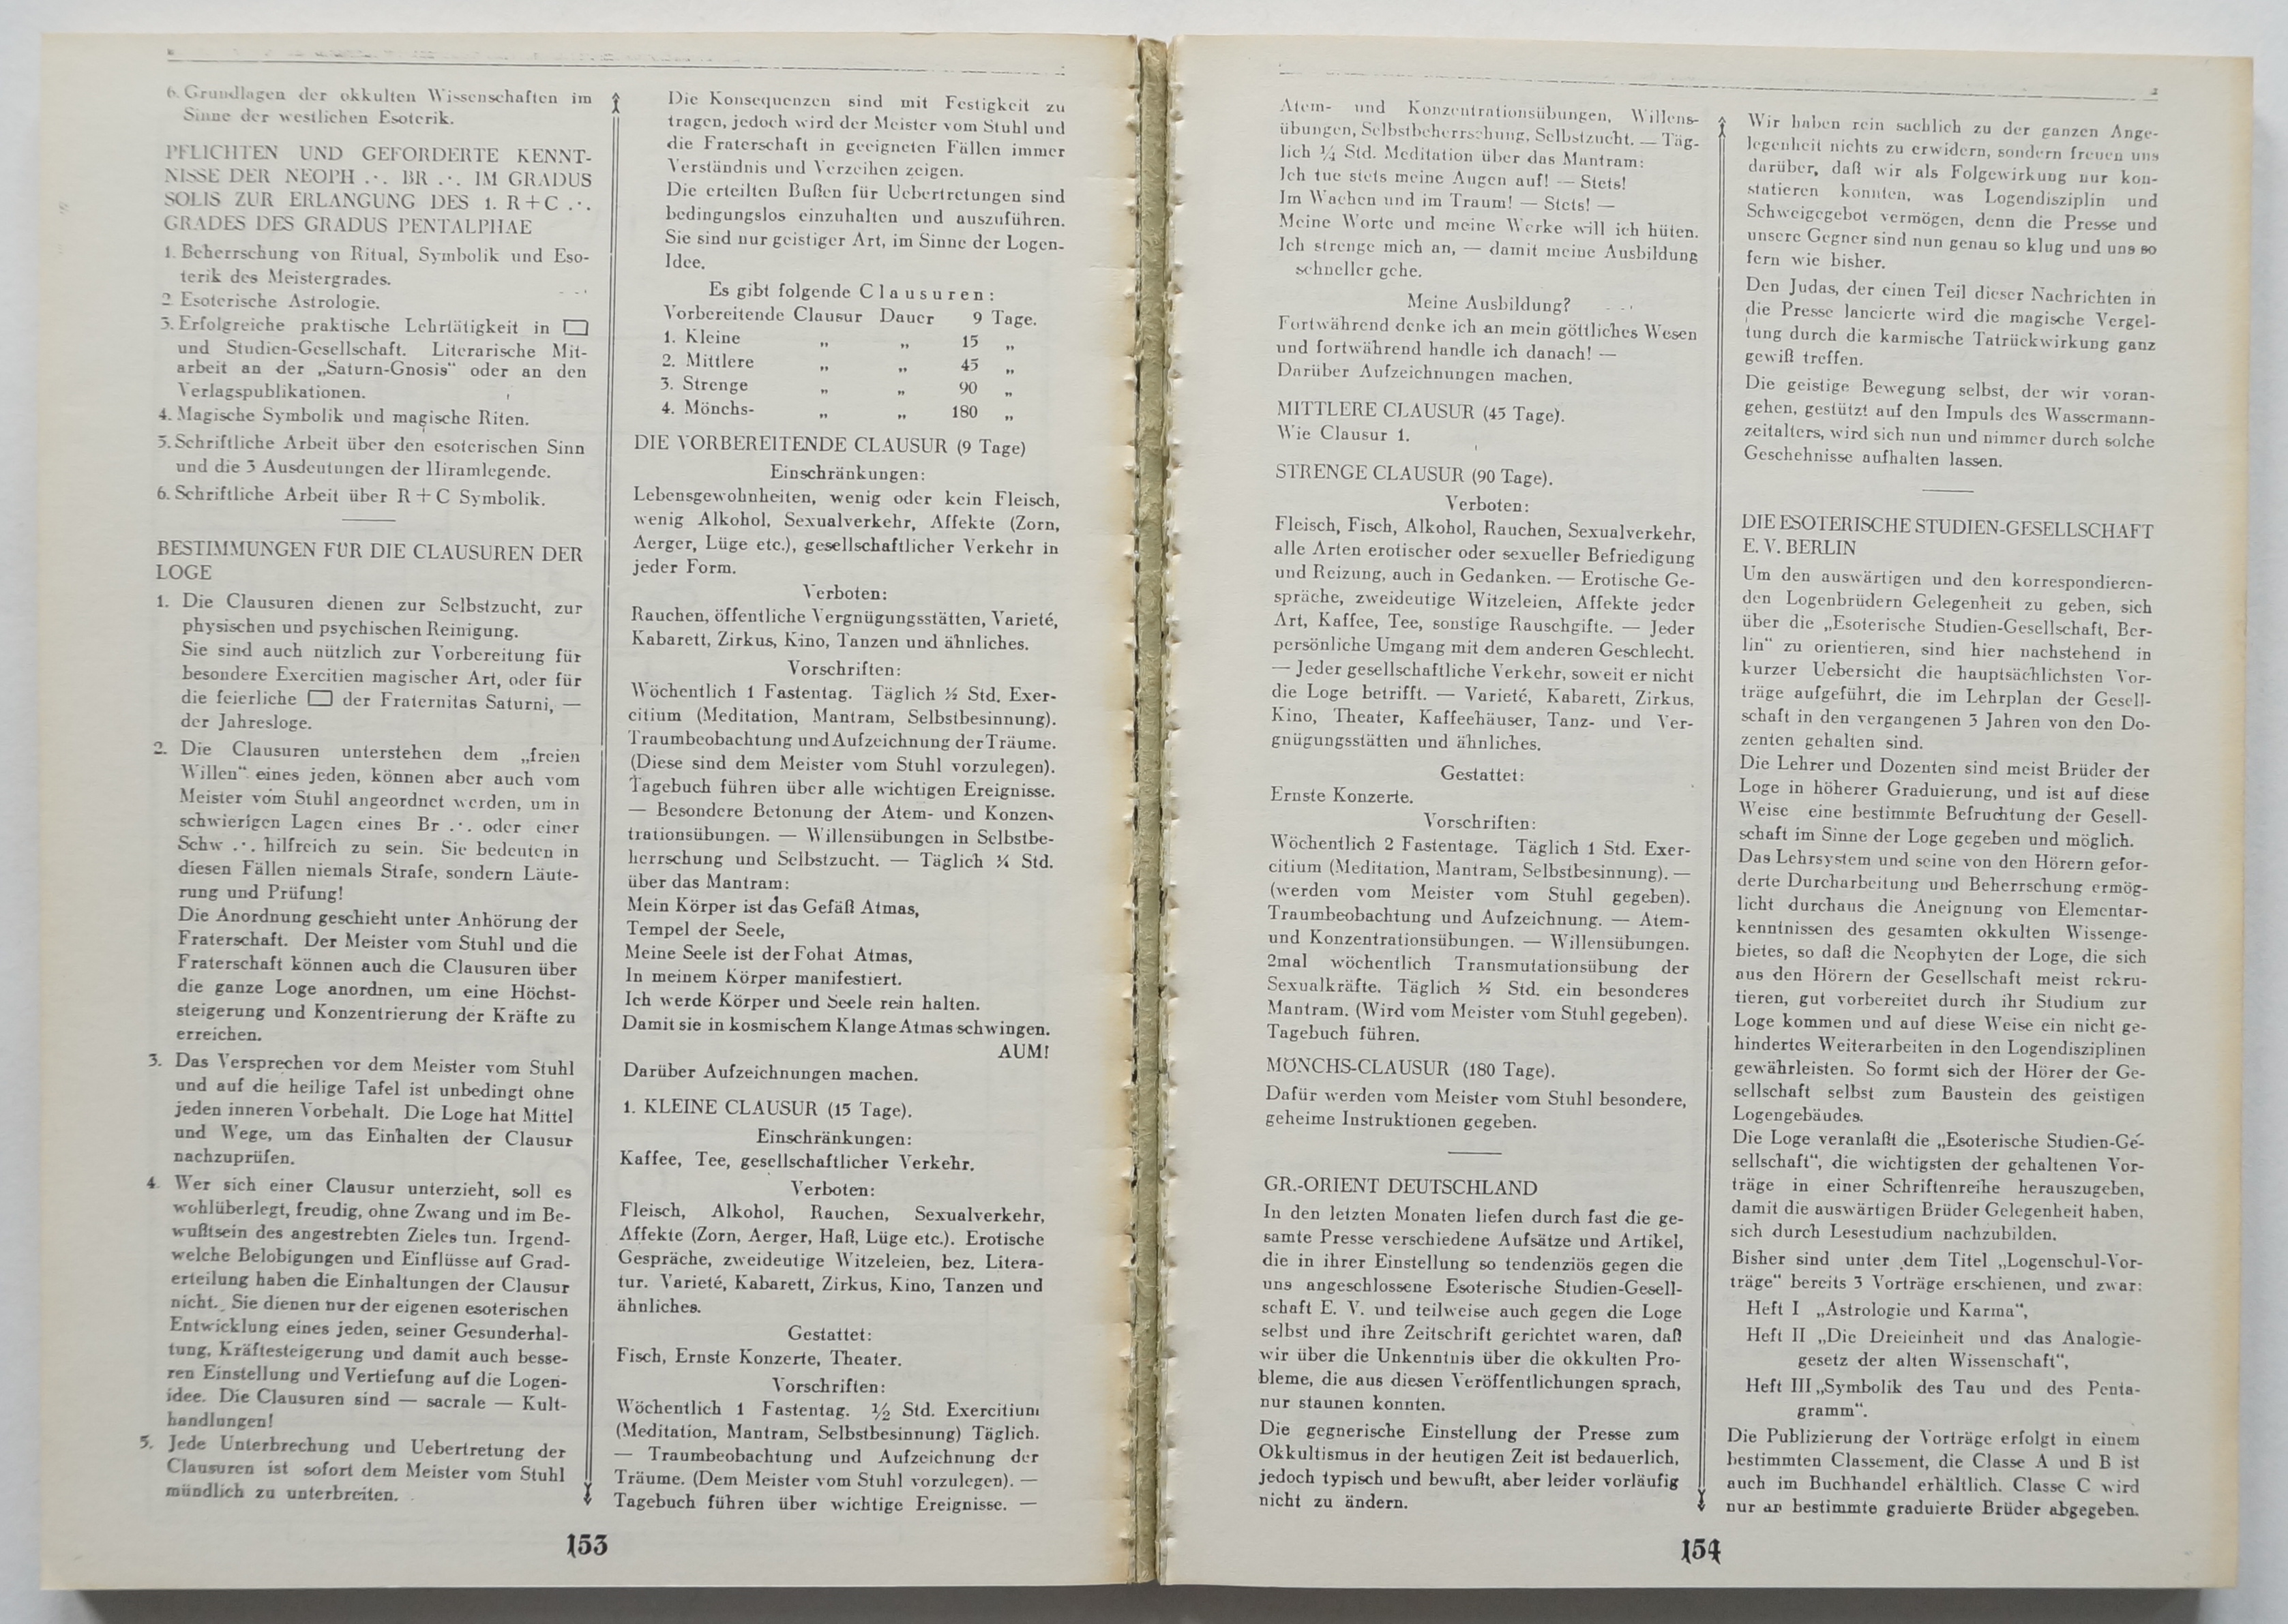 6. Grundlagen der okkulten Wissenschaften im
Sinne der westlichen Esoterik.
PFLICHTEN UND GEFORDERTE KENNT-
NISSE DER NEOPH .·. BR .·. IM GRADUS
SOLIS ZUR ERLANGUNG DES 1. R+C .·.
GRADES DES GRADUS PENTALPHAE
1. Beherrschung von Ritual, Symbolik und Eso-
terik des Meistergrades.
2 Esoterische Astrologie.
3. Erfolgreiche praktische Lehrtätigkeit in ▭
und Studien-Gesellschaft. Literarische Mit-
arbeit an der „Saturn-Gnosis“ oder an den
Verlagspublikationen.
4. Magische Symbolik und magische Riten.
5. Schriftliche Arbeit über den esoterischen Sinn
und die 3 Ausdeutungen der Hiramlegende.
6. Schriftliche Arbeit über R+C Symbolik.
BESTIMMUNGEN FÜR DIE CLAUSUREN DER
LOGE
1. Die Clausuren dienen zur Selbstzucht, zur
physischen und psychischen Reinigung.
Sie sind auch nützlich zur Vorbereitung für
besondere Exercitien magischer Art, oder für
die feierliche ▭ der Fraternitas Saturni, —
der Jahresloge.
2. Die Clausuren unterstehen dem „freien
Willen“ eines jeden, können aber auch vom
Meister vom Stuhl angeordnet werden, um in
schwierigen Lagen eines Br .·. oder einer
Schw .·. hilfreich zu sein. Sie bedeuten in
diesen Fällen niemals Strafe, sondern Läute-
rung und Prüfung!
Die Anordnung geschieht unter Anhörung der
Fraterschaft. Der Meister vom Stuhl und die
Fraterschaft können auch die Clausuren über
die ganze Loge anordnen, um eine Höchst-
steigerung und Konzentrierung der Kräfte zu
erreichen.
3. Das Versprechen vor dem Meister vom Stuhl
und auf die heilige Tafel ist unbedingt ohne
jeden inneren Vorbehalt. Die Loge hat Mittel
und Wege, um das Einhalten der Clausur
nachzuprüfen.
4. Wer sich einer Clausur unterzieht, soll es
wohlüberlegt, freudig, ohne Zwang und im Be-
wußtsein des angestrebten Zieles tun. Irgend-
welche Belobigungen und Einflüsse auf Grad-
erteilung haben die Einhaltungen der Clausur
nicht. Sie dienen nur der eigenen esoterischen
Entwicklung eines jeden, seiner Gesunderhal-
tung, Kräftesteigerung und damit auch besse-
ren Einstellung und Vertiefung auf die Logen-
idee. Die Clausuren sind — sacrale — Kult-
handlungen!
5. Jede Unterbrechung und Uebertretung der
Clausuren ist sofort dem Meister vom Stuhl
mündlich zu unterbreiten.
Die Konsequenzen sind mit Festigkeit zu
tragen, jedoch wird der Meister vom Stuhl und
die Fraterschaft in geeigneten Fällen immer
Verständnis und Verzeihen zeigen.
Die erteilten Bußen für Uebertretungen sind
bedingungslos einzuhalten und auszuführen.
Sie sind nur geistiger Art, im Sinne der Logen-
Idee.
Es gibt folgende Clausuren:
Vorbereitende Clausur Dauer 9 Tage.
1. Kleine „ „ 15 „
2. Mittlere „ „ 45 „
3. Strenge „ „ 90 „
4. Mönchs- „ „ 180 „
DIE VORBEREITENDE CLAUSUR (9 Tage)
Einschränkungen:
Lebensgewohnheiten, wenig oder kein Fleisch,
wenig Alkohol, Sexualverkehr, Affekte (Zorn,
Aerger, Lüge etc.), gesellschaftlicher Verkehr in
jeder Form.
Verboten:
Rauchen, öffentliche Vergnügungsstätten, Varieté,
Kabarett, Zirkus, Kino, Tanzen und ähnliches.
Vorschriften:
Wöchentlich 1 Fastentag. Täglich ½ Std. Exer-
citium (Meditation, Mantram, Selbstbesinnung).
Traumbeobachtung und Aufzeichnung der Träume.
(Diese sind dem Meister vom Stuhl vorzulegen).
Tagebuch führen über alle wichtigen Ereignisse.
— Besondere Betonung der Atem- und Konzen-
trationsübungen. — Willensübungen in Selbstbe-
herrschung und Selbstzucht. — Täglich ¼ Std.
über das Mantram:
Mein Körper ist das Gefäß Atmas,
Tempel der Seele,
Meine Seele ist der Fohat Atmas,
In meinem Körper manifestiert.
Ich werde Körper und Seele rein halten.
Damit sie in kosmischem Klange Atmas schwingen.
AUM!
Darüber Aufzeichnungen machen.
1. KLEINE CLAUSUR (15 Tage).
Einschränkungen:
Kaffee, Tee, gesellschaftlicher Verkehr.
Verboten:
Fleisch, Alkohol, Rauchen, Sexualverkehr,
Affekte (Zorn, Aerger, Haß, Lüge etc.). Erotische
Gespräche, zweideutige Witzeleien, bez. Litera-
tur. Varieté, Kabarett, Zirkus, Kino, Tanzen und
ähnliches.
Gestattet:
Fisch, Ernste Konzerte, Theater.
Vorschriften:
Wöchentlich 1 Fastentag. ½ Std. Exercitium
(Meditation, Mantram, Selbstbesinnung) Täglich.
— Traumbeobachtung und Aufzeichnung der
Träume. (Dem Meister vom Stuhl vorzulegen). —
Tagebuch führen über wichtige Ereignisse. —
153
Atem- und Konzentrationsübungen, Willens-
übungen, Selbstbeherrschung, Selbstzucht. — Täg-
lich ¼ Std. Meditation über das Mantram:
Ich tue stets meine Augen auf! — Stets!
Im Wachen und im Traum! — Stets! —
Meine Worte und meine Werke will ich hüten.
Ich strenge mich an, — damit meine Ausbildung
schneller gehe.
Meine Ausbildung?
Fortwährend denke ich an mein göttliches Wesen
und fortwährend handle ich danach! —
Darüber Aufzeichnungen machen.
MITTLERE CLAUSUR (45 Tage).
Wie Clausur 1.
STRENGE CLAUSUR (90 Tage).
Verboten:
Fleisch, Fisch, Alkohol, Rauchen, Sexualverkehr,
alle Arten erotischer oder sexueller Befriedigung
und Reizung, auch in Gedanken. — Erotische Ge-
spräche, zweideutige Witzeleien, Affekte jeder
Art, Kaffee, Tee, sonstige Rauschgifte. — Jeder
persönliche Umgang mit dem anderen Geschlecht.
— Jeder gesellschaftliche Verkehr, soweit er nicht
die Loge betrifft. — Varieté, Kabarett, Zirkus,
Kino, Theater, Kaffeehäuser, Tanz- und Ver-
gnügungsstätten und ähnliches.
Gestattet:
Ernste Konzerte.
Vorschriften:
Wöchentlich 2 Fastentage. Täglich 1 Std. Exer-
citium (Meditation, Mantram, Selbstbesinnung). —
(werden vom Meister vom Stuhl gegeben).
Traumbeobachtung und Aufzeichnung. — Atem-
und Konzentrationsübungen. — Willensübungen.
2mal wöchentlich Transmutationsübung der
Sexualkräfte. Täglich ½ Std. ein besonderes
Mantram. (Wird vom Meister vom Stuhl gegeben).
Tagebuch führen.
MÖNCHS-CLAUSUR (180 Tage).
Dafür werden vom Meister vom Stuhl besondere,
geheime Instruktionen gegeben.
GR.-ORIENT DEUTSCHLAND
In den letzten Monaten liefen durch fast die ge-
samte Presse verschiedene Aufsätze und Artikel,
die in ihrer Einstellung so tendenziös gegen die
uns angeschlossene Esoterische Studien-Gesell-
schaft E. V. und teilweise auch gegen die Loge
selbst und ihre Zeitschrift gerichtet waren, daß
wir über die Unkenntnis über die okkulten Pro-
bleme, die aus diesen Veröffentlichungen sprach,
nur staunen konnten.
Die gegnerische Einstellung der Presse zum
Okkultismus in der heutigen Zeit ist bedauerlich,
jedoch typisch und bewußt, aber leider vorläufig
nicht zu ändern.
Wir haben rein sachlich zu der ganzen Ange-
legenheit nichts zu erwidern, sondern freuen uns
darüber, daß wir als Folgewirkung nur kon-
statieren konnten, was Logendisziplin und
Schweigegebot vermögen, denn die Presse und
unsere Gegner sind nun genau so klug und uns so
fern wie bisher.
Den Judas, der einen Teil dieser Nachrichten in
die Presse lancierte wird die magische Vergel-
tung durch die karmische Tatrückwirkung ganz
gewiß treffen.
Die geistige Bewegung selbst, der wir voran-
gehen, gestützt auf den Impuls des Wassermann-
zeitalters, wird sich nun und nimmer durch solche
Geschehnisse aufhalten lassen.
DIE ESOTERISCHE STUDIEN-GESELLSCHAFT
E. V. BERLIN
Um den auswärtigen und den korrespondieren-
den Logenbrüdern Gelegenheit zu geben, sich
über die „Esoterische Studien-Gesellschaft, Ber-
lin“ zu orientieren, sind hier nachstehend in
kurzer Uebersicht die hauptsächlichsten Vor-
träge aufgeführt, die im Lehrplan der Gesell-
schaft in den vergangenen 3 Jahren von den Do-
zenten gehalten sind.
Die Lehrer und Dozenten sind meist Brüder der
Loge in höherer Graduierung, und ist auf diese
Weise eine bestimmte Befruchtung der Gesell-
schaft im Sinne der Loge gegeben und möglich.
Das Lehrsystem und seine von den Hörern gefor-
derte Durcharbeitung und Beherrschung ermög-
licht durchaus die Aneignung von Elementar-
kenntnissen des gesamten okkulten Wissenge-
bietes, so daß die Neophyten der Loge, die sich
aus den Hörern der Gesellschaft meist rekru-
tieren, gut vorbereitet durch ihr Studium zur
Loge kommen und auf diese Weise ein nicht ge-
hindertes Weiterarbeiten in den Logendisziplinen
gewährleisten. So formt sich der Hörer der Ge-
sellschaft selbst zum Baustein des geistigen
Logengebäudes.
Die Loge veranlaßt die „Esoterische Studien-Ge-
sellschaft“, die wichtigsten der gehaltenen Vor-
träge in einer Schriftenreihe herauszugeben,
damit die auswärtigen Brüder Gelegenheit haben,
sich durch Lesestudium nachzubilden.
Bisher sind unter dem Titel „Logenschul-Vor-
träge“ bereits 3 Vorträge erschienen, und zwar:
Heft I „Astrologie und Karma“,
Heft II „Die Dreieinheit und das Analogie-
gesetz der alten Wissenschaft“,
Heft III „Symbolik des Tau und des Penta-
gramm“.
Die Publizierung der Vorträge erfolgt in einem
bestimmten Classement, die Classe A und B ist
auch im Buchhandel erhältlich. Classe C wird
nur an bestimmte graduierte Brüder abgegeben.
154